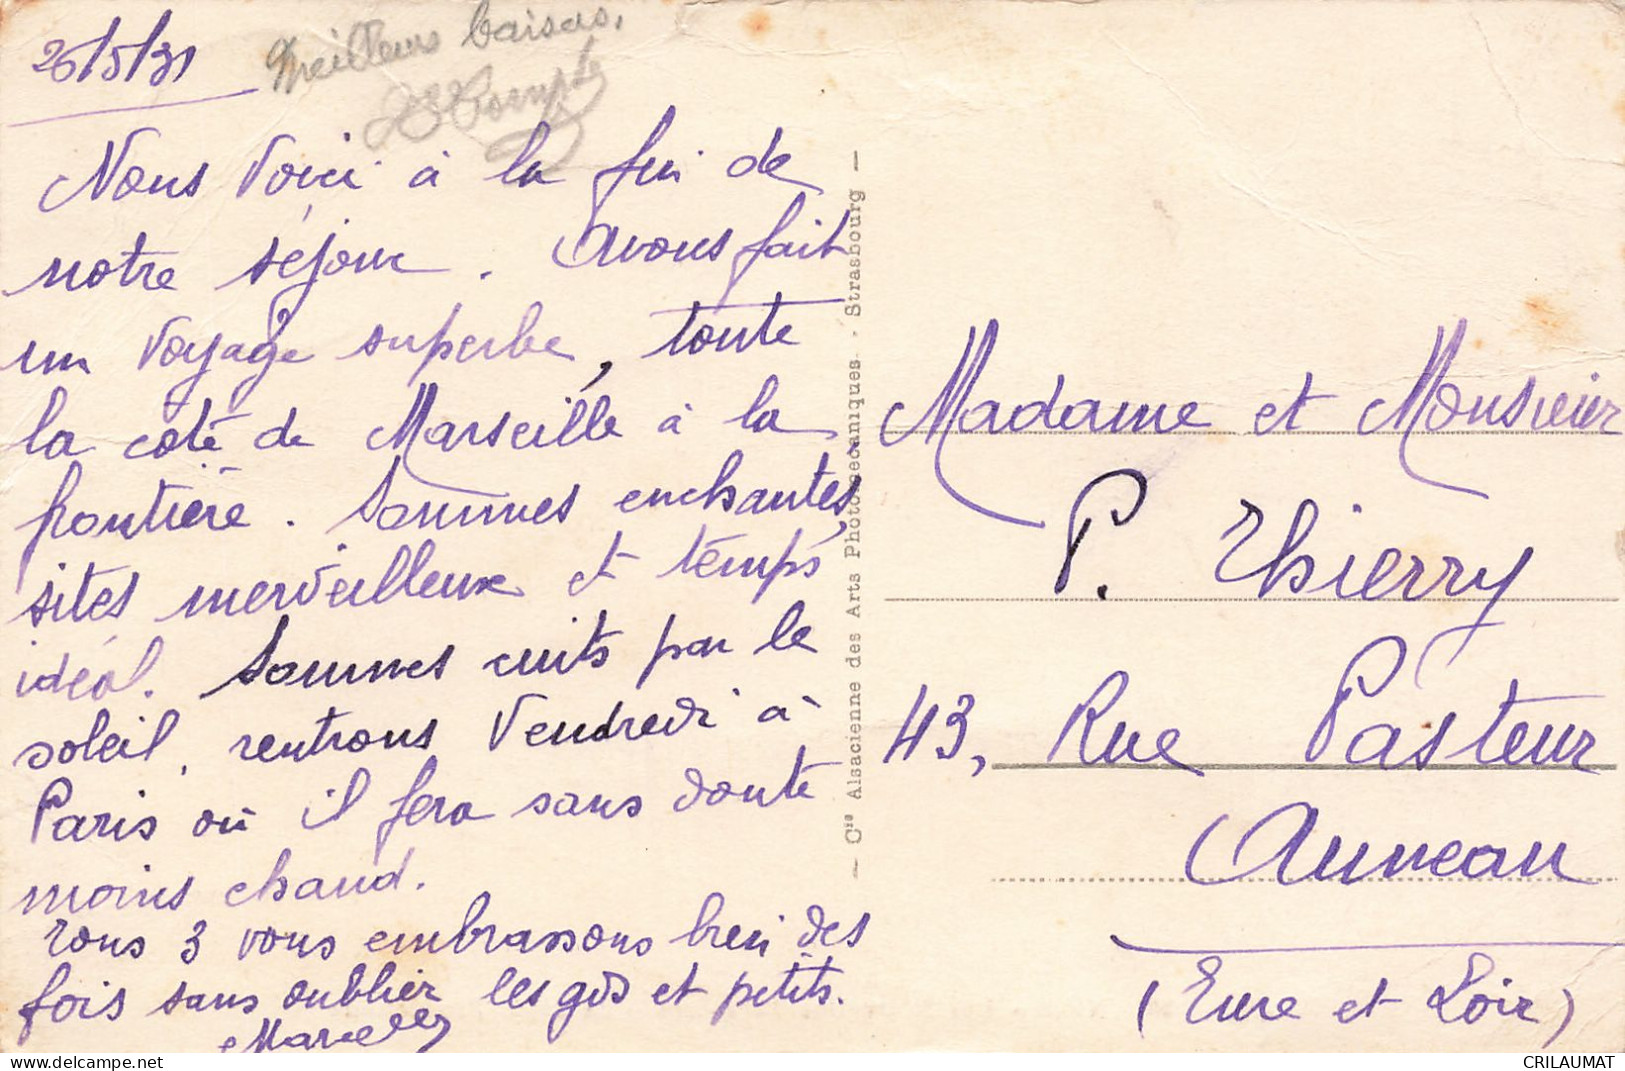 26/5/31
Meilleurs baisers.
Nous voici à la fin de
notre séjour. Avons fait
un voyage superbe, toute
la coté de Marseille à la
frontière. Sommes enchantés,
sites merveilleux et temps
idéal. Sommes cuits par le
soleil, rentrons Vendredi à
Paris où il fera sans doute
moins chaud.
Tous 3 vous embrassons bien des
fois sans oublier les gds et petits.
Marcelle
— Cie Alsacienne des Arts Photomécaniques. - Strasbourg —
Madame et Monsieur
P. Thierry
43, Rue Pasteur
Auneau
(Eure et Loir)
delcampe.net
CRILAUMAT